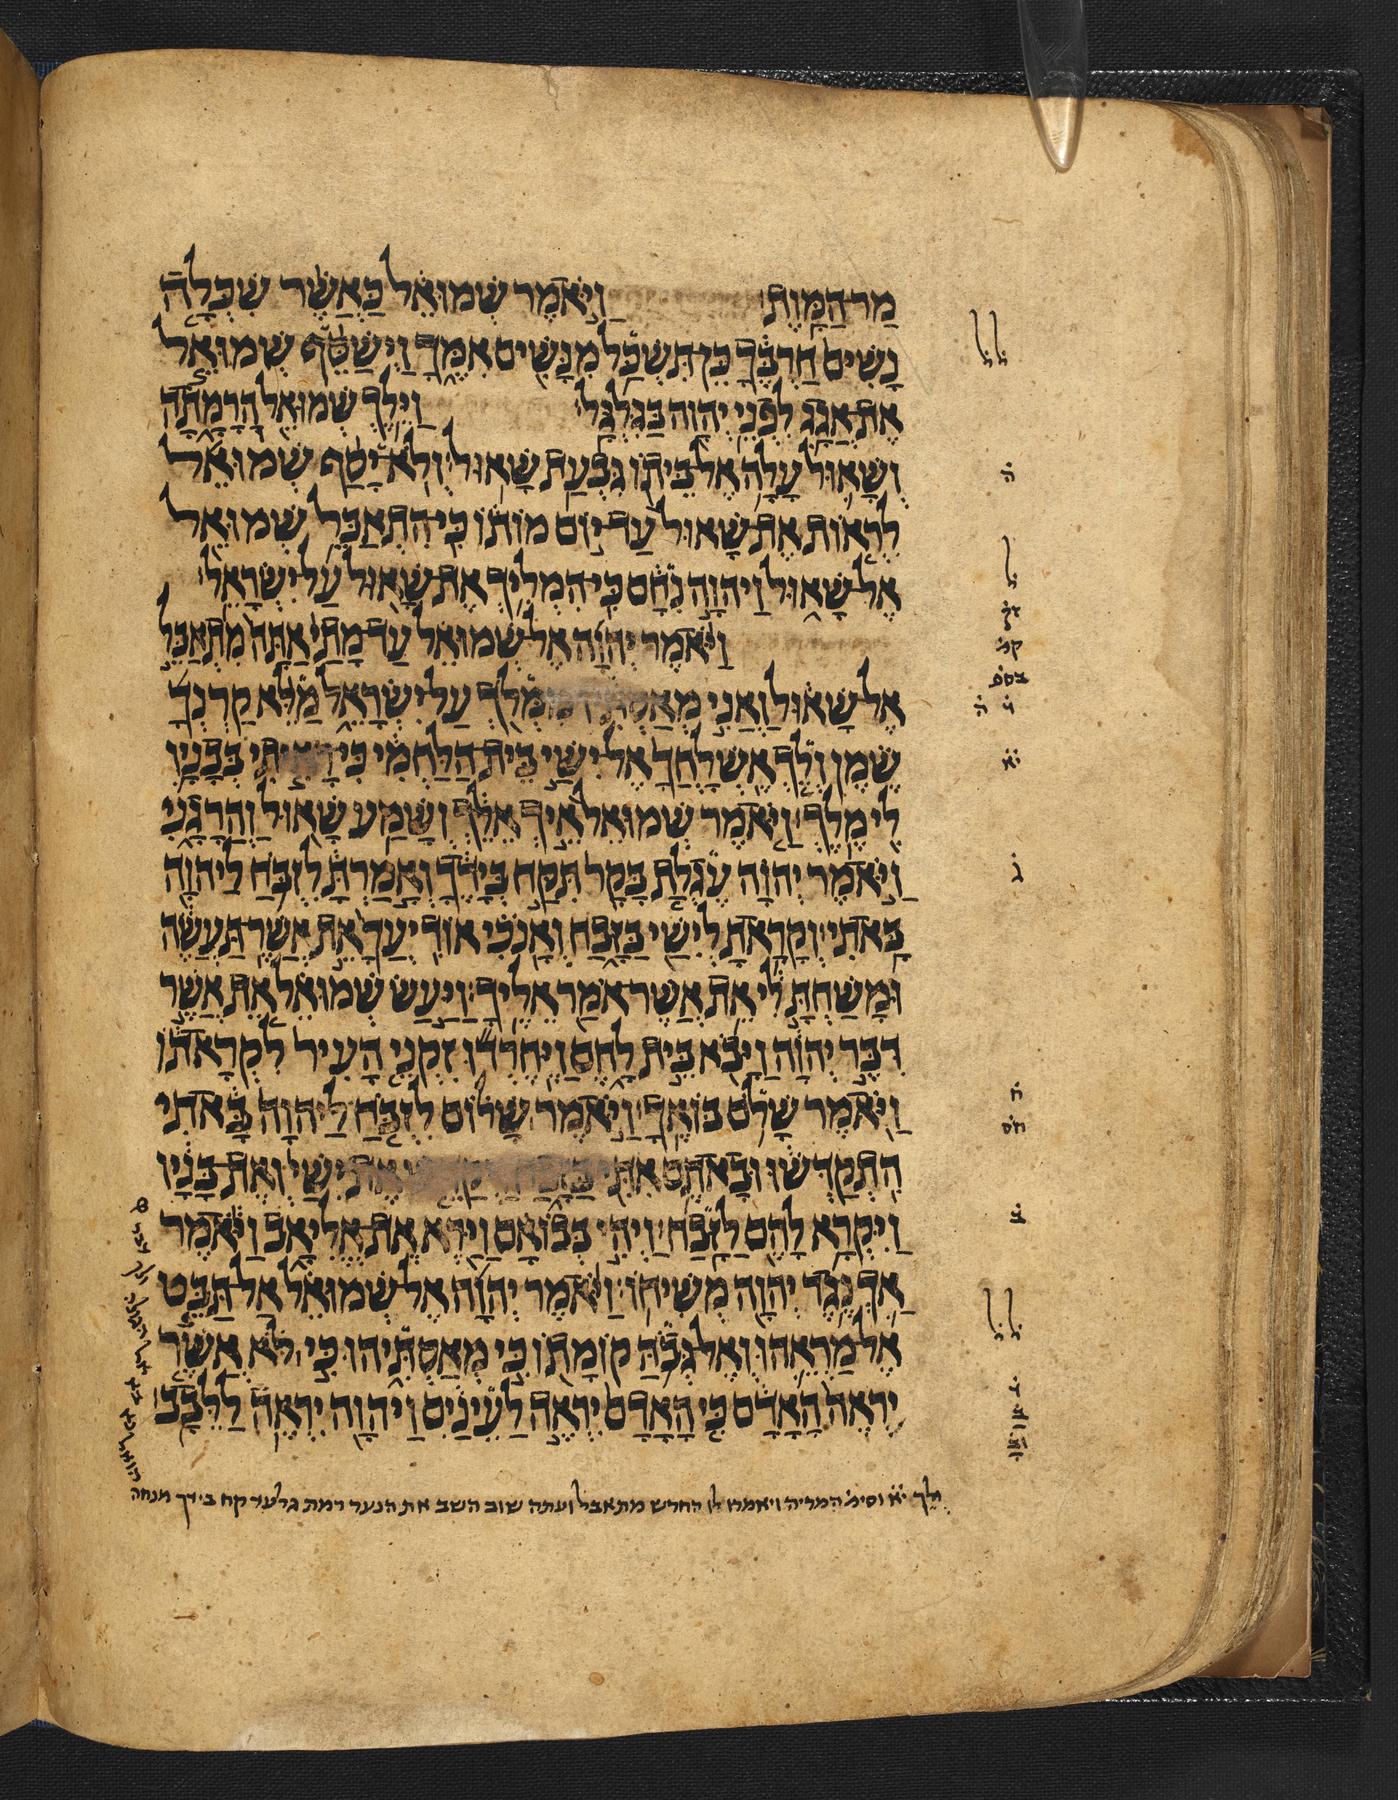 מַר הַמָּוֶת׃ וַיֹּאמֶר שְׁמוּאֵל כַּאֲשֶׁר שִׁכְּלָה
נָשִׁים חַרְבֶּךָ כֵּן תִּשְׁכַּל מִנָּשִׁים אִמֶּךָ וַיְשַׁסֵּף שְׁמוּאֵל
אֶת אֲגָג לִפְנֵי יְהוָה בַּגִּלְגָּל׃ וַיֵּלֶךְ שְׁמוּאֵל הָרָמָתָה
וְשָׁאוּל עָלָה אֶל בֵּיתוֹ גִּבְעַת שָׁאוּל׃ וְלֹא יָסַף שְׁמוּאֵל
לִרְאוֹת אֶת שָׁאוּל עַד יוֹם מוֹתוֹ כִּי הִתְאַבֵּל שְׁמוּאֵל
אֶל שָׁאוּל וַיהוָה נִחָם כִּי הִמְלִיךְ אֶת שָׁאוּל עַל יִשְׂרָאֵל׃
וַיֹּאמֶר יְהוָה אֶל שְׁמוּאֵל עַד מָתַי אַתָּה מִתְאַבֵּל
אֶל שָׁאוּל וַאֲנִי מְאַסְתִּיו מִמְּלֹךְ עַל יִשְׂרָאֵל מַלֵּא קַרְנְךָ
שֶׁמֶן וְלֵךְ אֶשְׁלָחֲךָ אֶל יִשַׁי בֵּית הַלַּחְמִי כִּי רָאִיתִי בְּבָנָיו
לִי מֶלֶךְ׃ וַיֹּאמֶר שְׁמוּאֵל אֵיךְ אֵלֵךְ וְשָׁמַע שָׁאוּל וַהֲרָגָנִי
וַיֹּאמֶר יְהוָה עֶגְלַת בָּקָר תִּקַּח בְּיָדֶךָ וְאָמַרְתָּ לִזְבֹּחַ לַיהוָה
בָּאתִי׃ וְקָרָאתָ לְיִשַׁי בַּזָּבַח וְאָנֹכִי אוֹדִיעֲךָ אֵת אֲשֶׁר תַּעֲשֶׂה
וּמָשַׁחְתָּ לִי אֵת אֲשֶׁר אֹמַר אֵלֶיךָ׃ וַיַּעַשׂ שְׁמוּאֵל אֵת אֲשֶׁר
דִּבֶּר יְהוָה וַיָּבֹא בֵּית לָחֶם וַיֶּחֶרְדוּ זִקְנֵי הָעִיר לִקְרָאתוֹ
וַיֹּאמֶר שָׁלֹם בּוֹאֶךָ׃ וַיֹּאמֶר שָׁלוֹם לִזְבֹּחַ לַיהוָה בָּאתִי
הִתְקַדְּשׁוּ וּבָאתֶם אִתִּי בַּזָּבַח וַיְקַדֵּשׁ אֶת יִשַׁי וְאֶת בָּנָיו
וַיִּקְרָא לָהֶם לַזָּבַח׃ וַיְהִי בְּבוֹאָם וַיַּרְא אֶת אֱלִיאָב וַיֹּאמֶר
אַךְ נֶגֶד יְהוָה מְשִׁיחוֹ׃ וַיֹּאמֶר יְהוָה אֶל שְׁמוּאֵל אַל תַּבֵּט
אֶל מַרְאֵהוּ וְאֶל גְּבֹהַּ קוֹמָתוֹ כִּי מְאַסְתִּיהוּ כִּי לֹא אֲשֶׁר
יִרְאֶה הָאָדָם כִּי הָאָדָם יִרְאֶה לַעֵינַיִם וַיהוָה יִרְאֶה לַלֵּבָב
ל ל
ה
ל
קמ
בספ
יא
ג
ח
חס
ב
ל ל
וסימ המריה ויאמרו לו החרש מתאבל ועתה שוב השב את הנער קח בידך מנחה